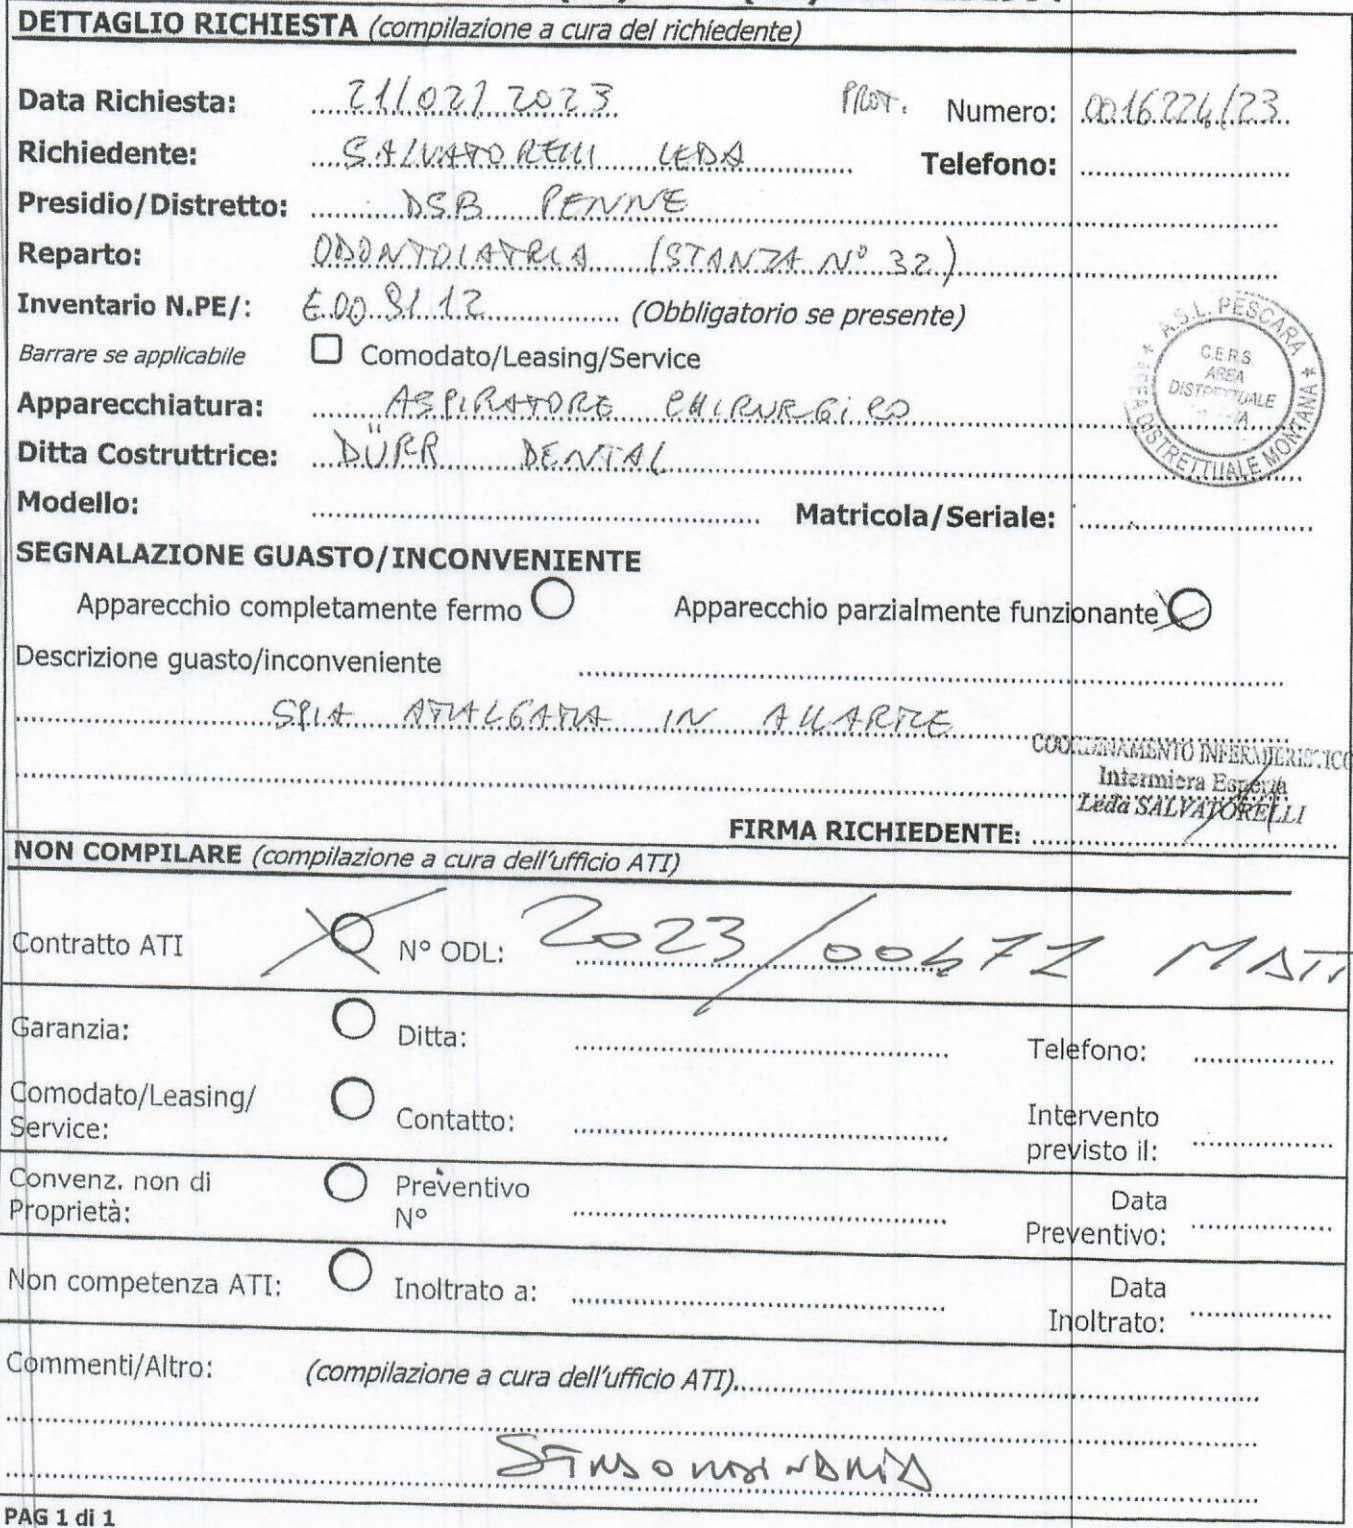 DETTAGLIO RICHIESTA (compilazione a cura del richiedente)
Data Richiesta: 21/02/2023 PROT. Numero: 0016224/23
Richiedente: SALVATORELLI LEDA Telefono:
Presidio/Distretto: DSB PENNE
Reparto: ODONTOIATRIA (STANZA N° 32)
Inventario N.PE/: E009112 (Obbligatorio se presente)
Barrare se applicabile Comodato/Leasing/Service
Apparecchiatura: ASPIRATORE CHIRURGICO
Ditta Costruttrice: DÜRR DENTAL
Modello: Matricola/Seriale:
A.S.L. PESCARA
C.E.R.S.
AREA
DISTRETTUALE
AREA DISTRETTUALE MONTANA
SEGNALAZIONE GUASTO/INCONVENIENTE
Apparecchio completamente fermo Apparecchio parzialmente funzionante
Descrizione guasto/inconveniente
SPIA AMALGAMA IN ALLARME
COORDINAMENTO INFERMIERISTICO
Infermiera Esperta
Leda SALVATORELLI
FIRMA RICHIEDENTE:
NON COMPILARE (compilazione a cura dell'ufficio ATI)
Contratto ATI N° ODL: 2023/00471 MATI
Garanzia: Ditta: Telefono:
Comodato/Leasing/
Service: Contatto: Intervento
previsto il:
Convenz. non di
Proprietà: Preventivo
N° Data
Preventivo:
Non competenza ATI: Inoltrato a: Data
Inoltrato:
Commenti/Altro: (compilazione a cura dell'ufficio ATI)
STRAORDINARIA
PAG 1 di 1